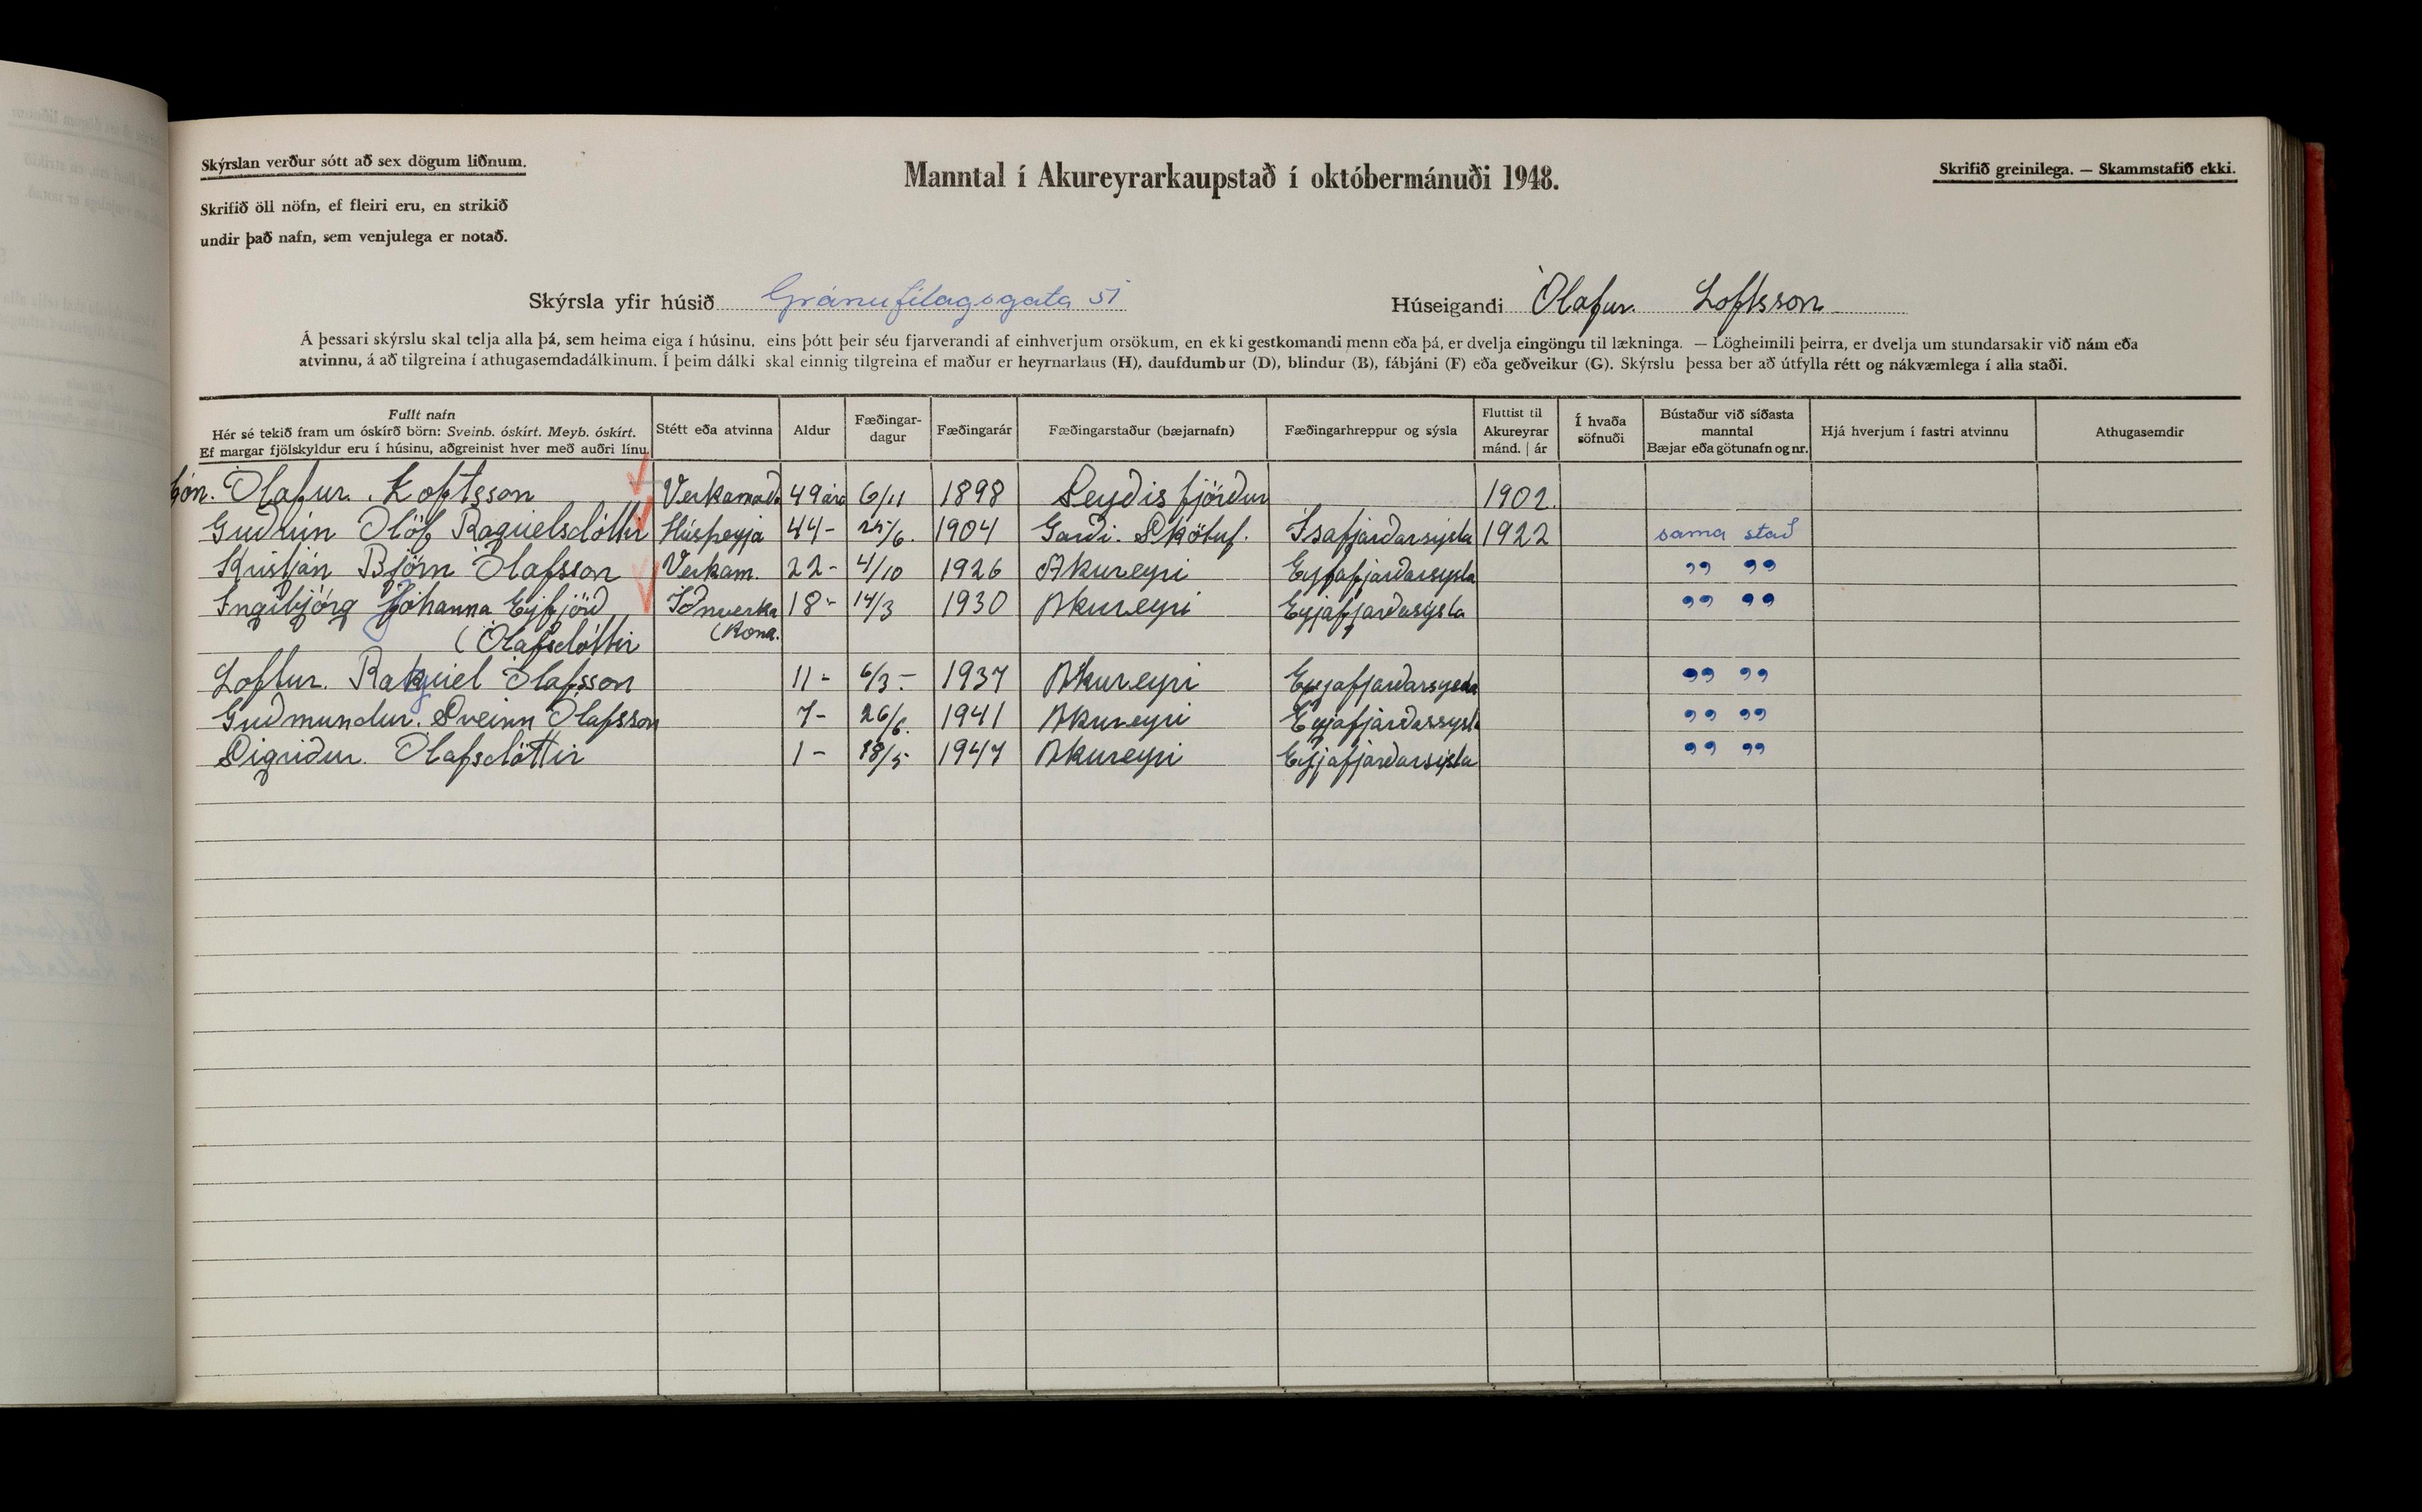 Skýrslan verður sótt að sex dögum liðnum.
Skrifið öll nöfn, ef fleiri eru, en strikið
undir það nafn, sem venjulega er notað.
Manntal í Akureyrarkaupstað í októbermánuði 1948.
Skrifið greinilega. — Skammstafið ekki.
Skýrsla yfir húsið Gránufélagsgata 51
Húseigandi Ólafur. Loftsson
Á þessari skýrslu skal telja alla þá, sem heima eiga í húsinu, eins þótt þeir séu fjarverandi af einhverjum orsökum, en ekki gestkomandi menn eða þá, er dvelja eingöngu til lækninga. — Lögheimili þeirra, er dvelja um stundarsakir við nám eða
atvinnu, á að tilgreina í athugasemdadálkinum. Í þeim dálki skal einnig tilgreina ef maður er heyrnarlaus (H), daufdumbur (D), blindur (B), fábjáni (F) eða geðveikur (G). Skýrslu þessa ber að útfylla rétt og nákvæmlega í alla staði.
Fullt nafn
Hér sé tekið fram um óskírð börn: Sveinb. óskírt. Meyb. óskírt.
Ef margar fjölskyldur eru í húsinu, aðgreinist hver með auðri línu.
Stétt eða atvinna
Aldur
Fæðingar-
dagur
Fæðingarár
Fæðingarstaður (bæjarnafn)
Fæðingarhreppur og sýsla
Fluttist til
Akureyrar
mánd. | ár
Í hvaða
söfnuði
Bústaður við síðasta
manntal
Bæjar eða götunafn og nr.
Hjá hverjum í fastri atvinnu
Athugasemdir
Jón. Ólafur. Loftsson Verkamað. 49 ára 6/11 1898 Seyðisfjörður 1902.
Guðrún Ólöf Raquelsdóttir Húsfreyja 44- 25/6. 1904 Garði. Skötuf. Ísafjarðarsýsla 1922 sama stað
Kristján Björn Ólafsson Verkam. 22- 4/10 1926 Akureyri Eyjafjarðarsysla ,, ,,
Ingibjörg Jóhanna Eyfjörð Iðnverka 18- 14/3 1930 Akureyri Eyjafjarðasýsla ,, ,,
(Ólafsdóttir (kona.
Loftur. Raquel Ólafsson 11- 6/3- 1937 Akureyri Eyjafjarðarsysla ,, ,,
Guðmundur. Sveinn Ólafsson 7- 26/6. 1941 Akureyri Eyjafjarðassysl ,, ,,
Sigriður. Ólafsdóttir 1- 18/5 1947 Akureyri Eyjafjarðarsýsla ,, ,,